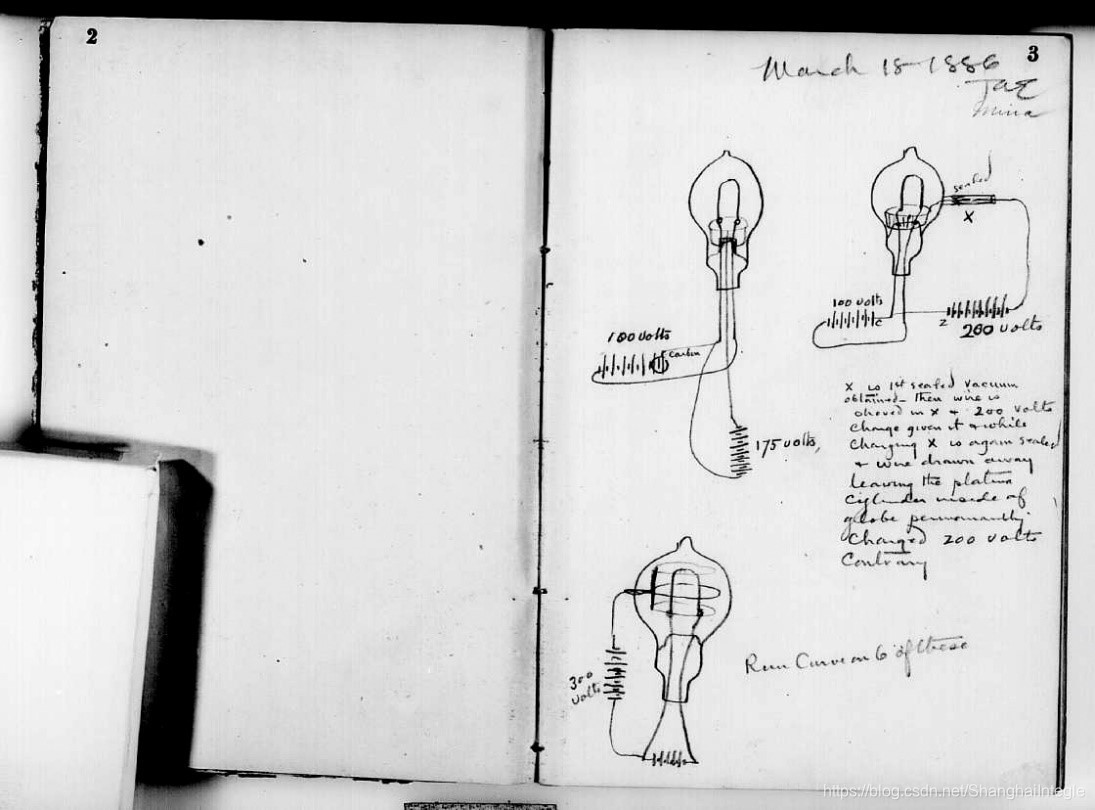 2
3
March 18-1886
TAE
Mina
sealed
X
100 volts
c
Z
200 volts
100 volts
carbon
175 volts,
X is 1st sealed vacuum
obtained - then wire is
shoved in X & 200 volts
charge given it & while
charging X is again sealed
& wire drawn away
leaving the platina
cylinder inside of
globe permanantly
charged 200 volts
Contrary
300
volts
Run Curve on 6 of these
https://blog.csdn.net/ShanghaiIntegle